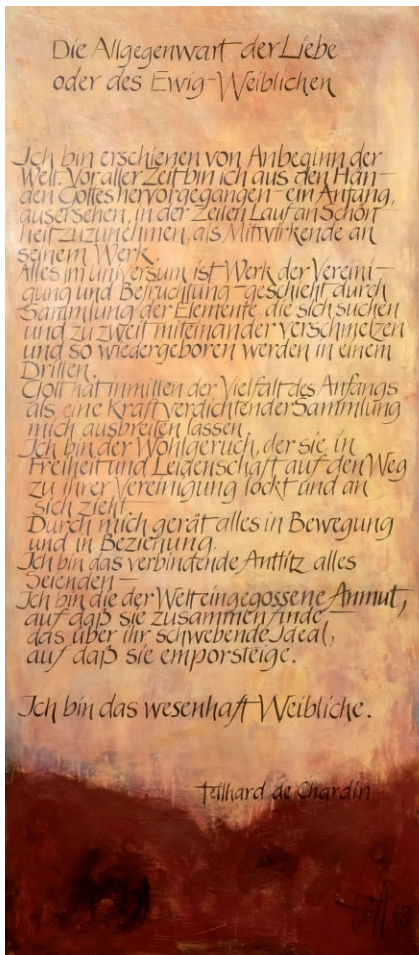 Die Allgegenwart der Liebe
oder des Ewig-Weiblichen
Ich bin erschienen von Anbeginn der
Welt. Vor aller Zeit bin ich aus den Hän-
den Gottes hervorgegangen - ein Anfang,
ausersehen, in der Zeiten Lauf an Schön
heit zuzunehmen, als Mitwirkende an
seinem Werk.
Alles im Universum ist Werk der Vereini-
gung und Befruchtung - geschieht durch
Sammlung der Elemente, die sich suchen
und zu zweit miteinander verschmelzen
und so wiedergeboren werden in einem
Dritten.
Gott hat inmitten der Vielfalt des Anfangs
als eine Kraft verdichtender Sammlung
mich ausbreiten lassen.
Ich bin der Wohlgeruch, der sie in
Freiheit und Leidenschaft auf den Weg
zu ihrer Vereinigung lockt und an
sich zieht
Durch mich gerät alles in Bewegung
und in Beziehung.
Ich bin das verbindende Antlitz alles
Seienden -
Ich bin die der Welt eingegossene Anmut,
auf daß sie zusammenfinde -
das über ihr schwebende Ideal,
auf daß sie emporsteige.
Ich bin das wesenhaft Weibliche.
Teilhard de Chardin